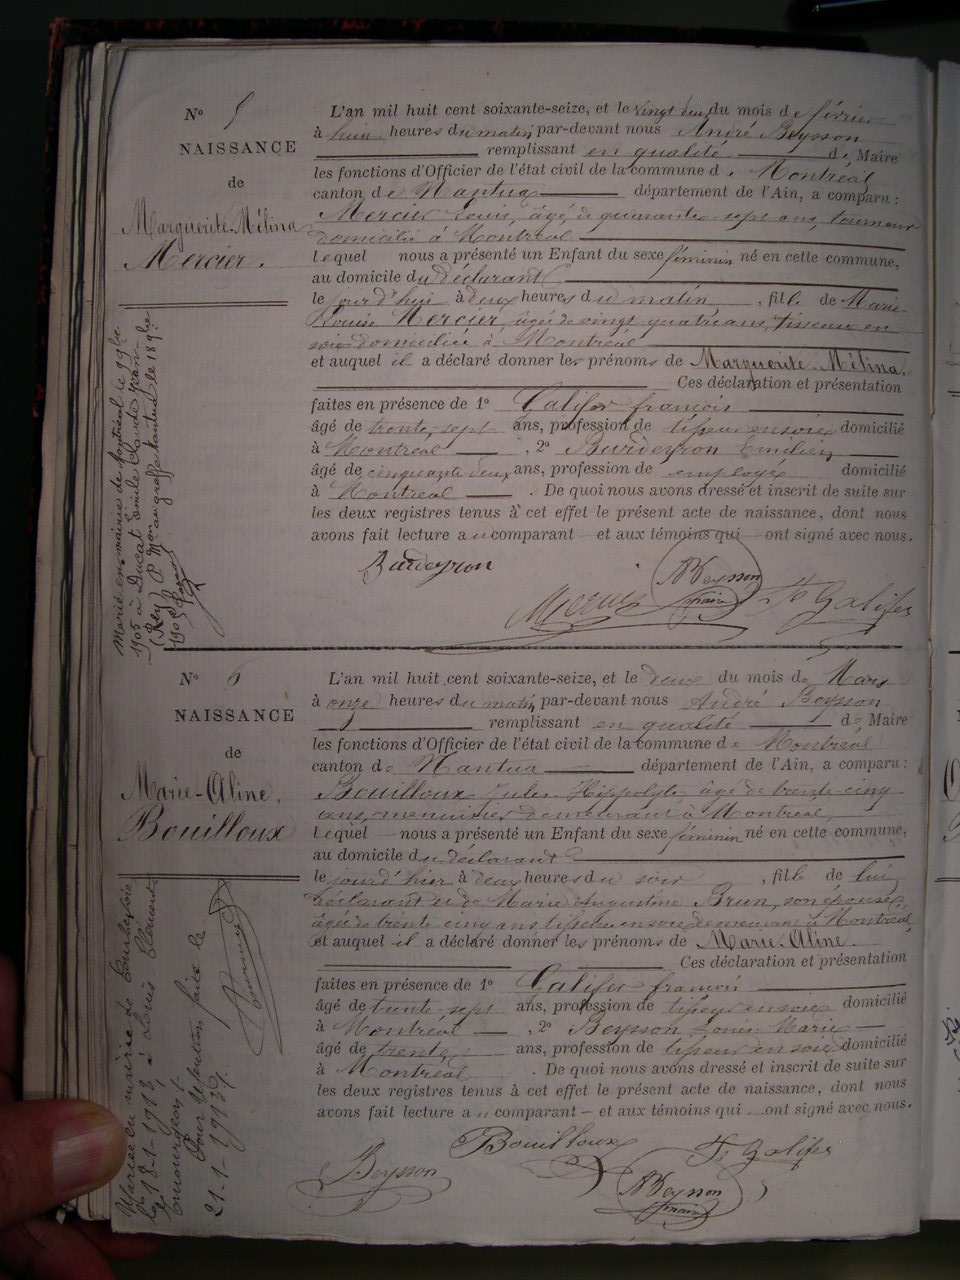 N° 5
NAISSANCE
de
Marguerite-Mélina
Mercier.
L'an mil huit cent soixante-seize, et le vingt deux du mois de février
à huit heures du matin, par-devant nous André Beysson
remplissant en qualité de Maire
les fonctions d'Officier de l'état civil de la commune de Montréal
canton de Nantua département de l'Ain, a comparu :
Mercier Louis, âgé de quarante-sept ans, tourneur
domicilié à Montréal
Lequel nous a présenté un Enfant du sexe féminin né en cette commune,
au domicile du déclarant
le jour d'hui à deux heures du matin, fille de Marie
Louise Mercier, âgée de vingt quatre ans, tisseur en
soie domiciliée à Montréal
et auquel il a déclaré donner les prénoms de Marguerite-Mélina.
Ces déclaration et présentation
faites en présence de 1° Galifer françois
âgé de trente-sept ans, profession de tisseur en soie domicilié
à Montréal, 2° Burdeyron Emilien
âgé de cinquante deux ans, profession de employé domicilié
à Montréal. De quoi nous avons dressé et inscrit de suite sur
les deux registres tenus à cet effet le présent acte de naissance, dont nous
avons fait lecture au comparant et aux témoins qui ont signé avec nous.
Burdeyron
ABeysson
maire
Mercier
Fs Galifer
Mariée en mairie de Montréal le 9 bre
1905 à Ducat Emile Claude Jean
N° 6
NAISSANCE
de
Marie-Aline.
Bouilloux
L'an mil huit cent soixante-seize, et le deux du mois de Mars
à onze heures du matin, par-devant nous André Beysson
remplissant en qualité de Maire
les fonctions d'Officier de l'état civil de la commune de Montréal
canton de Nantua département de l'Ain, a comparu :
Bouilloux Jules Hippolyte, âgé de trente-cinq
ans, menuisier demeurant à Montréal,
Lequel nous a présenté un Enfant du sexe féminin né en cette commune,
au domicile du déclarant
le jourd'hier à deux heures du soir, fille de lui
déclarant et de Marie Augustine Brun, son épouse,
âgée de trente cinq ans tisseur en soie demeurant à Montréal
et auquel il a déclaré donner les prénoms de Marie-Aline.
Ces déclaration et présentation
faites en présence de 1° Galifer françois
âgé de trente-sept ans, profession de tisseur en soie domicilié
à Montréal, 2° Beysson Louis Marie
âgé de trente ans, profession de tisseur en soie domicilié
à Montréal. De quoi nous avons dressé et inscrit de suite sur
les deux registres tenus à cet effet le présent acte de naissance, dont nous
avons fait lecture au comparant et aux témoins qui ont signé avec nous.
Bouilloux
Fs Galifer
Beysson
ABeysson
maire
Mariée en mairie de Courbevoie
le 18-1-1913, à Louis Clément
Pour Mention faite le
21-1-1913.